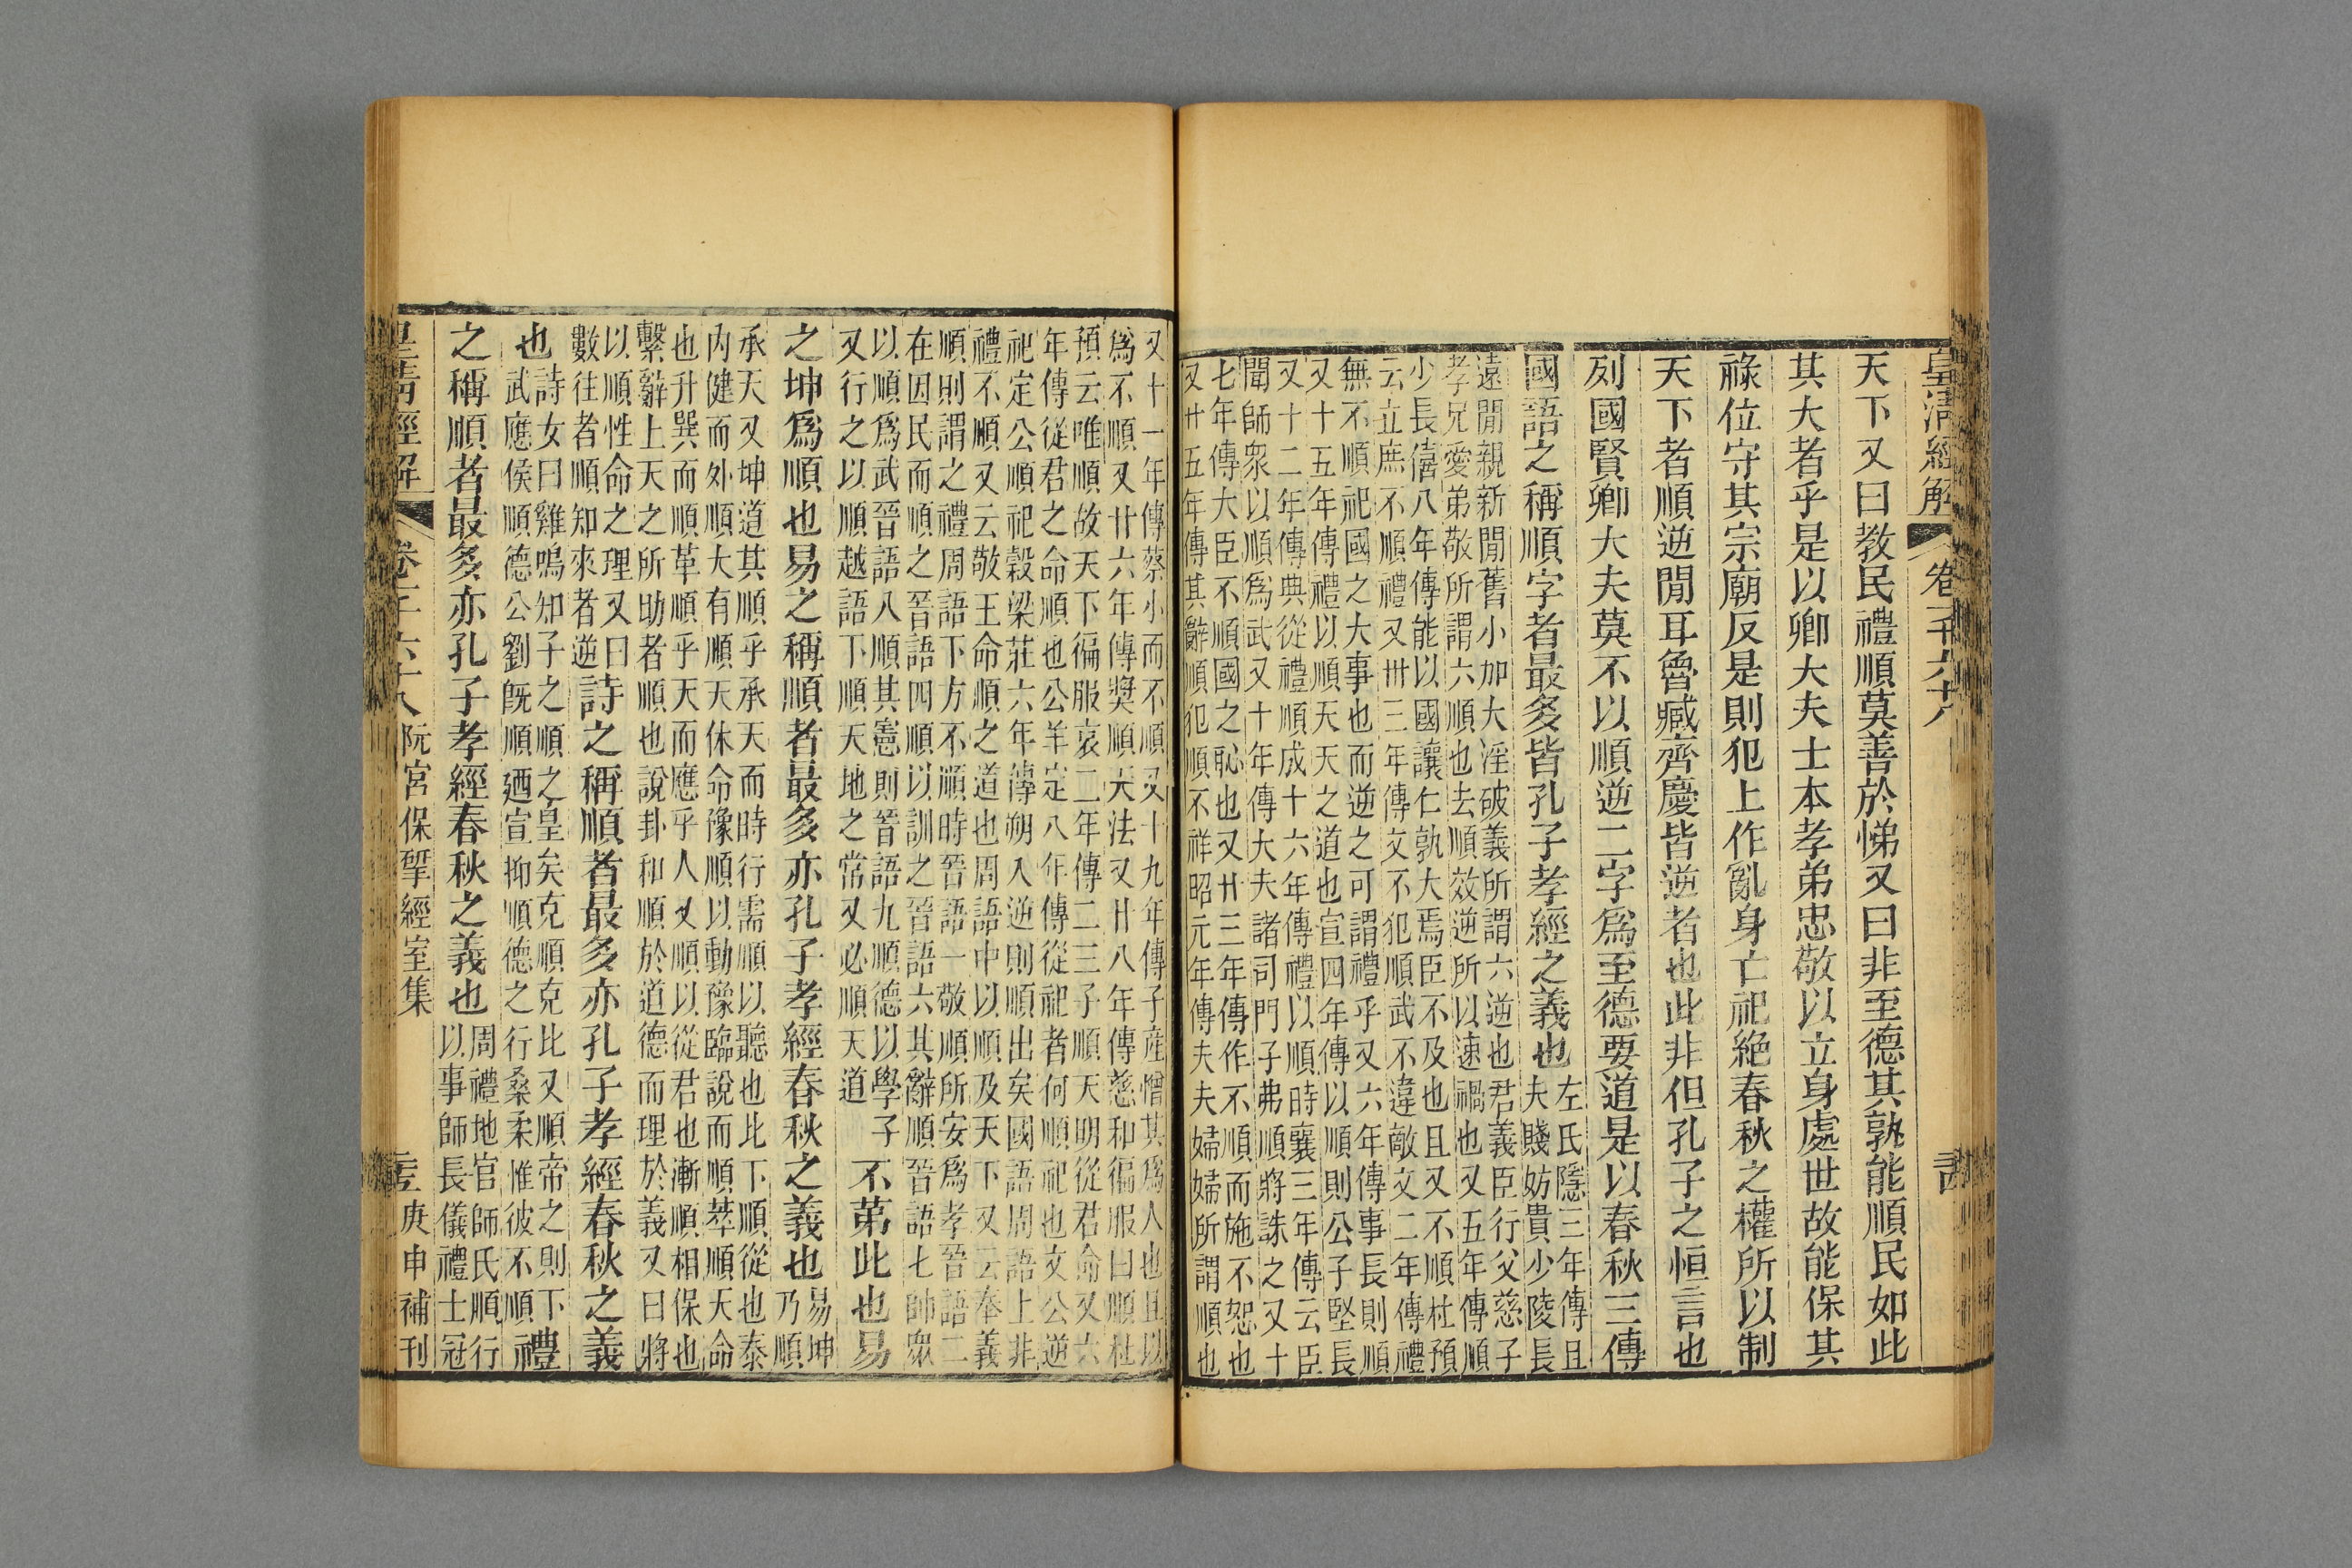 皇清經解 卷千六十八
天下又曰教民禮順莫善於悌又曰非至德其孰能順民如此
其大者乎是以卿大夫士本孝弟忠敬以立身處世故能保其
祿位守其宗廟反是則犯上作亂身亡祀絶春秋之權所以制
天下者順逆閒耳魯臧齊慶皆逆者也此非但孔子之恒言也
列國賢卿大夫莫不以順逆二字爲至德要道是以春秋三傳
國語之稱順字者最多皆孔子孝經之義也
左氏隱三年傳且
夫賤妨貴少陵長
遠閒親新閒舊小加大淫破義所謂六逆也君義臣行父慈子
孝兄愛弟敬所謂六順也去順效逆所以速禍也又五年傳順
少長僖八年傳能以國讓仁孰大焉臣不及也且又不順杜預
云立庶不順禮又卅三年傳文不犯順武不違敵文二年傳禮
無不順祀國之大事也而逆之可謂禮乎又六年傳事長則順
又十五年傳禮以順天天之道也宣四年傳以順則公子堅長
又十二年傳典從禮順成十六年傳禮以順時襄三年傳云臣
聞師衆以順爲武又十年傳大夫諸司門子弗順將誅之又十
七年傳大臣不順國之恥也又廿三年傳作不順而施不恕也
又廿五年傳其辭順犯順不祥昭元年傳夫夫婦婦所謂順也
又十一年傳蔡小而不順又十九年傳子產憎其爲人也且以
爲不順又廿六年傳奬順天法又廿八年傳慈和徧服曰順杜
預云唯順故天下徧服哀二年傳二三子順天明從君命又六
年傳從君之命順也公羊定八年傳從祀者何順祀也文公逆
祀定公順祀穀梁莊六年傳朔入逆則順出矣國語周語上非
禮不順又云敬王命順之道也周語中以順及天下又云奉義
順則謂之禮周語下方不順時晉語一敬順所安爲孝晉語二
在因民而順之晉語四順以訓之晉語六其辭順晉語七帥衆
以順爲武晉語八順其憲則晉語九順德以學子
又行之以順越語下順天地之常又必順天道
不第此也易
之坤爲順也易之稱順者最多亦孔子孝經春秋之義也
易坤
乃順
承天又坤道其順乎承天而時行需順以聽也比下順從也泰
内健而外順大有順天休命豫順以動豫臨說而順萃順天命
也升巽而順革順乎天而應乎人又順以從君也漸順相保也
繫辭上天之所助者順也說卦和順於道德而理於義又曰將
以順性命之理又曰
數往者順知來者逆
詩之稱順者最多亦孔子孝經春秋之義
也
詩女曰雞鳴知子之順之皇矣克順克比又順帝之則下
武應侯順德公劉既順迺宣抑順德之行桑柔惟彼不順
禮
之稱順者最多亦孔子孝經春秋之義也
周禮地官師氏順行
以事師長儀禮士冠
皇清經解 卷千六十八 阮宮保揅經室集 庚申補刊